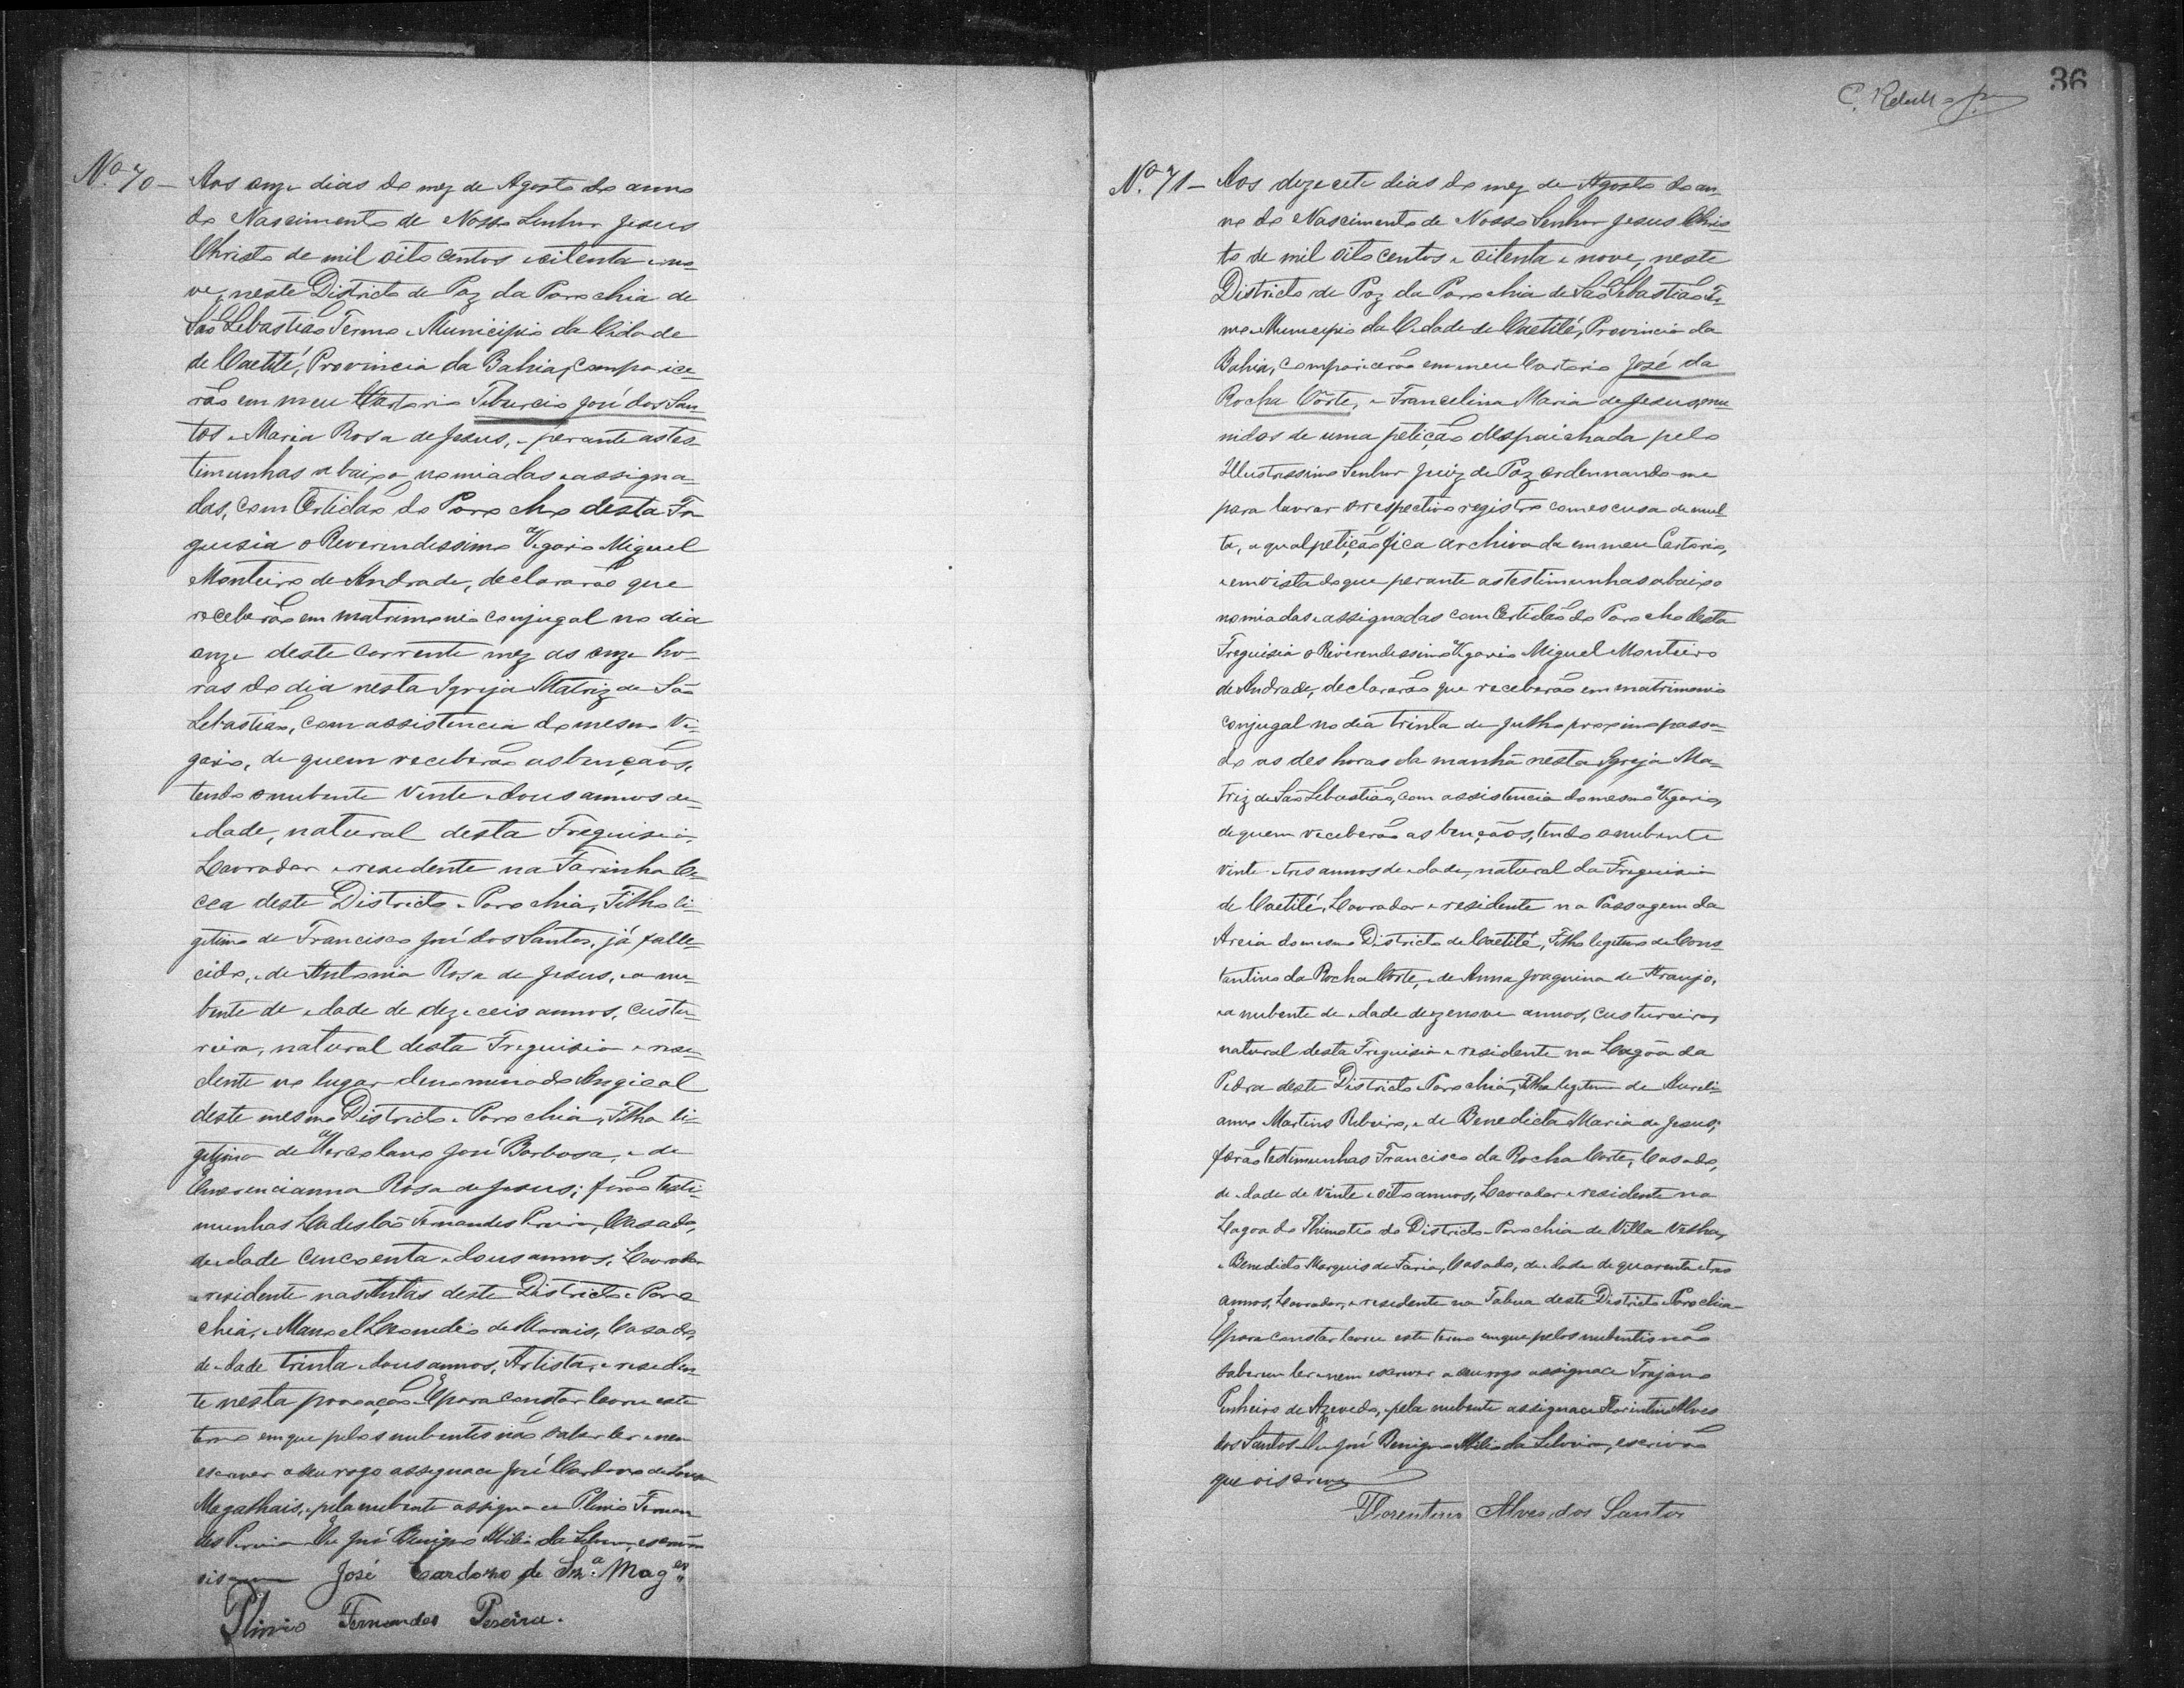 Nº 70 – Aos onze dias do mez de Agosto do anno
do Nascimento de Nosso Senhor Jesus
Christo de mil oito centos e oitenta e no-
ve, neste Districto de Paz da Parochia de
São Sebastião Termo e Municipio da Cidade
de Caetité, Provincia da Bahia, comparice-
rão em meu Cartorio Tiburcio José dos San-
tos e Maria Rosa de Jesus, e perante as tes-
timunhas abaixo nomiadas e assigna-
das, com Certidão do Parocho desta Fre-
guisia o Reverendissimo Vigario Miguel
Monteiro de Andrade, declararão que
receberão em matrimonio conjugal no dia
onze deste corrente mez as onze ho-
ras do dia nesta Igreja Matriz de São
Sebastião, com assistencia do mesmo Vi-
gario, de quem receberão as bençãos,
tendo o nubente vinte e dous annos de
edade, natural desta Freguisia,
Lavrador e residente na Farinha
deste Districto e Parochia, Filho li-
gitimo de Francisco José dos Santos, já falle-
cido, e de Antonia Rosa de Jesus, e a nu-
bente de edade de dezeceis annos, custu-
reira, natural desta Freguisia e resi-
dente no lugar denominado Angical
deste mesmo Districto e Parochia, Filha li-
gitima de Hercolano José Barbosa, e de
Emerencianna Rosa de Jesus; forão testi-
munhas Ladeslão Fernandes Pereira, Casado,
de edade cincoenta e dous annos, Lavrador
e residente nas Antas deste Districto e Paro
chia, e Manoel Leonidio de Morais, Casado,
de edade trinta e dous annos, Artista, e residen-
te nesta povoação. E para constar lavrei este
termo em que pelos nubentes não saber ler e nem
escrever a seu rogo assignace José Cardozo de Souza
Magalhais, e pela nubente assignace Plinio Fernan
des Pereira Eu José Benigno da Silveira, escrivão
José Cardozo de Sza. Mages
Plinio Fernandes Pereira.
36
Nº 71 – Aos dezecete dias do mez de Agosto do an-
no do Nascimento de Nosso Senhor Jesus Chris-
to de mil oito centos e oitenta e nove, neste
Districto de Paz da Parochia de São Sebastião Ter-
mo e Municipio da Cidade de Caetité, Provincia da
Bahia, comparicerão em meu Cartorio José da
Rocha Côrte, e Francelina Maria de Jesus, mu-
nidos de uma petição despaichada pelo
Illustrassimo Senhor Juiz de Paz ordennando-me
para lavrar o respectivo registro com escusa de mul-
ta, a qual petição fica archivada em meu Cartorio,
e em vista do que perante as testimunhas abaixo
nomiadas e assignadas com Certidão do Parocho desta
Freguisia o Reverendissimo Vigario Miguel Monteiro
de Andrade, declararão que receberão em matrimonio
conjugal no dia trinta de Julho proximo passa-
do as des horas da manhã nesta Igreja Ma-
triz de São Sebastião, com assistencia do mesmo Vigario,
de quem receberão as bençãos, tendo o nubente
vinte e tres annos de edade, natural da Freguisia
de Caetité, Lavrador e residente na Passagem da
Areia do mesmo Districto de Caetité, Filho legitimo de Cons-
tantino da Rocha Côrte, e de Anna Joaquina de Araujo,
e a nubente de edade dezenove annos, custureira,
natural desta Freguisia e residente na Lagôa da
Pedra deste Districto e Parochia, Filha legitima de Aureli-
anno Martins Ribeiro, e de Benedicta Maria de Jesus;
forão testimunhas Francisco da Rocha Corte, Casado,
de edade de vinte e oito annos, Lavrador e residente na
Lagoa do Thimotio do Districto e Parochia de Villa Velha,
e Benedicto Marquis de Faria, Casado, de edade de quarenta e tres
annos, Lavrador, e residente na Tabua deste Districto e Parochia
E para constar lavrei este termo em que pelos nubentes não
saberem ler e nem escrever a seu rogo assignace Trajano
Pinheiro de Azevedo, e pela nubente assignace Florintino Alves
dos Santos Eu José Benigno da Silveira, escrivão
que o iscrevi
Florentino Alves dos Santos